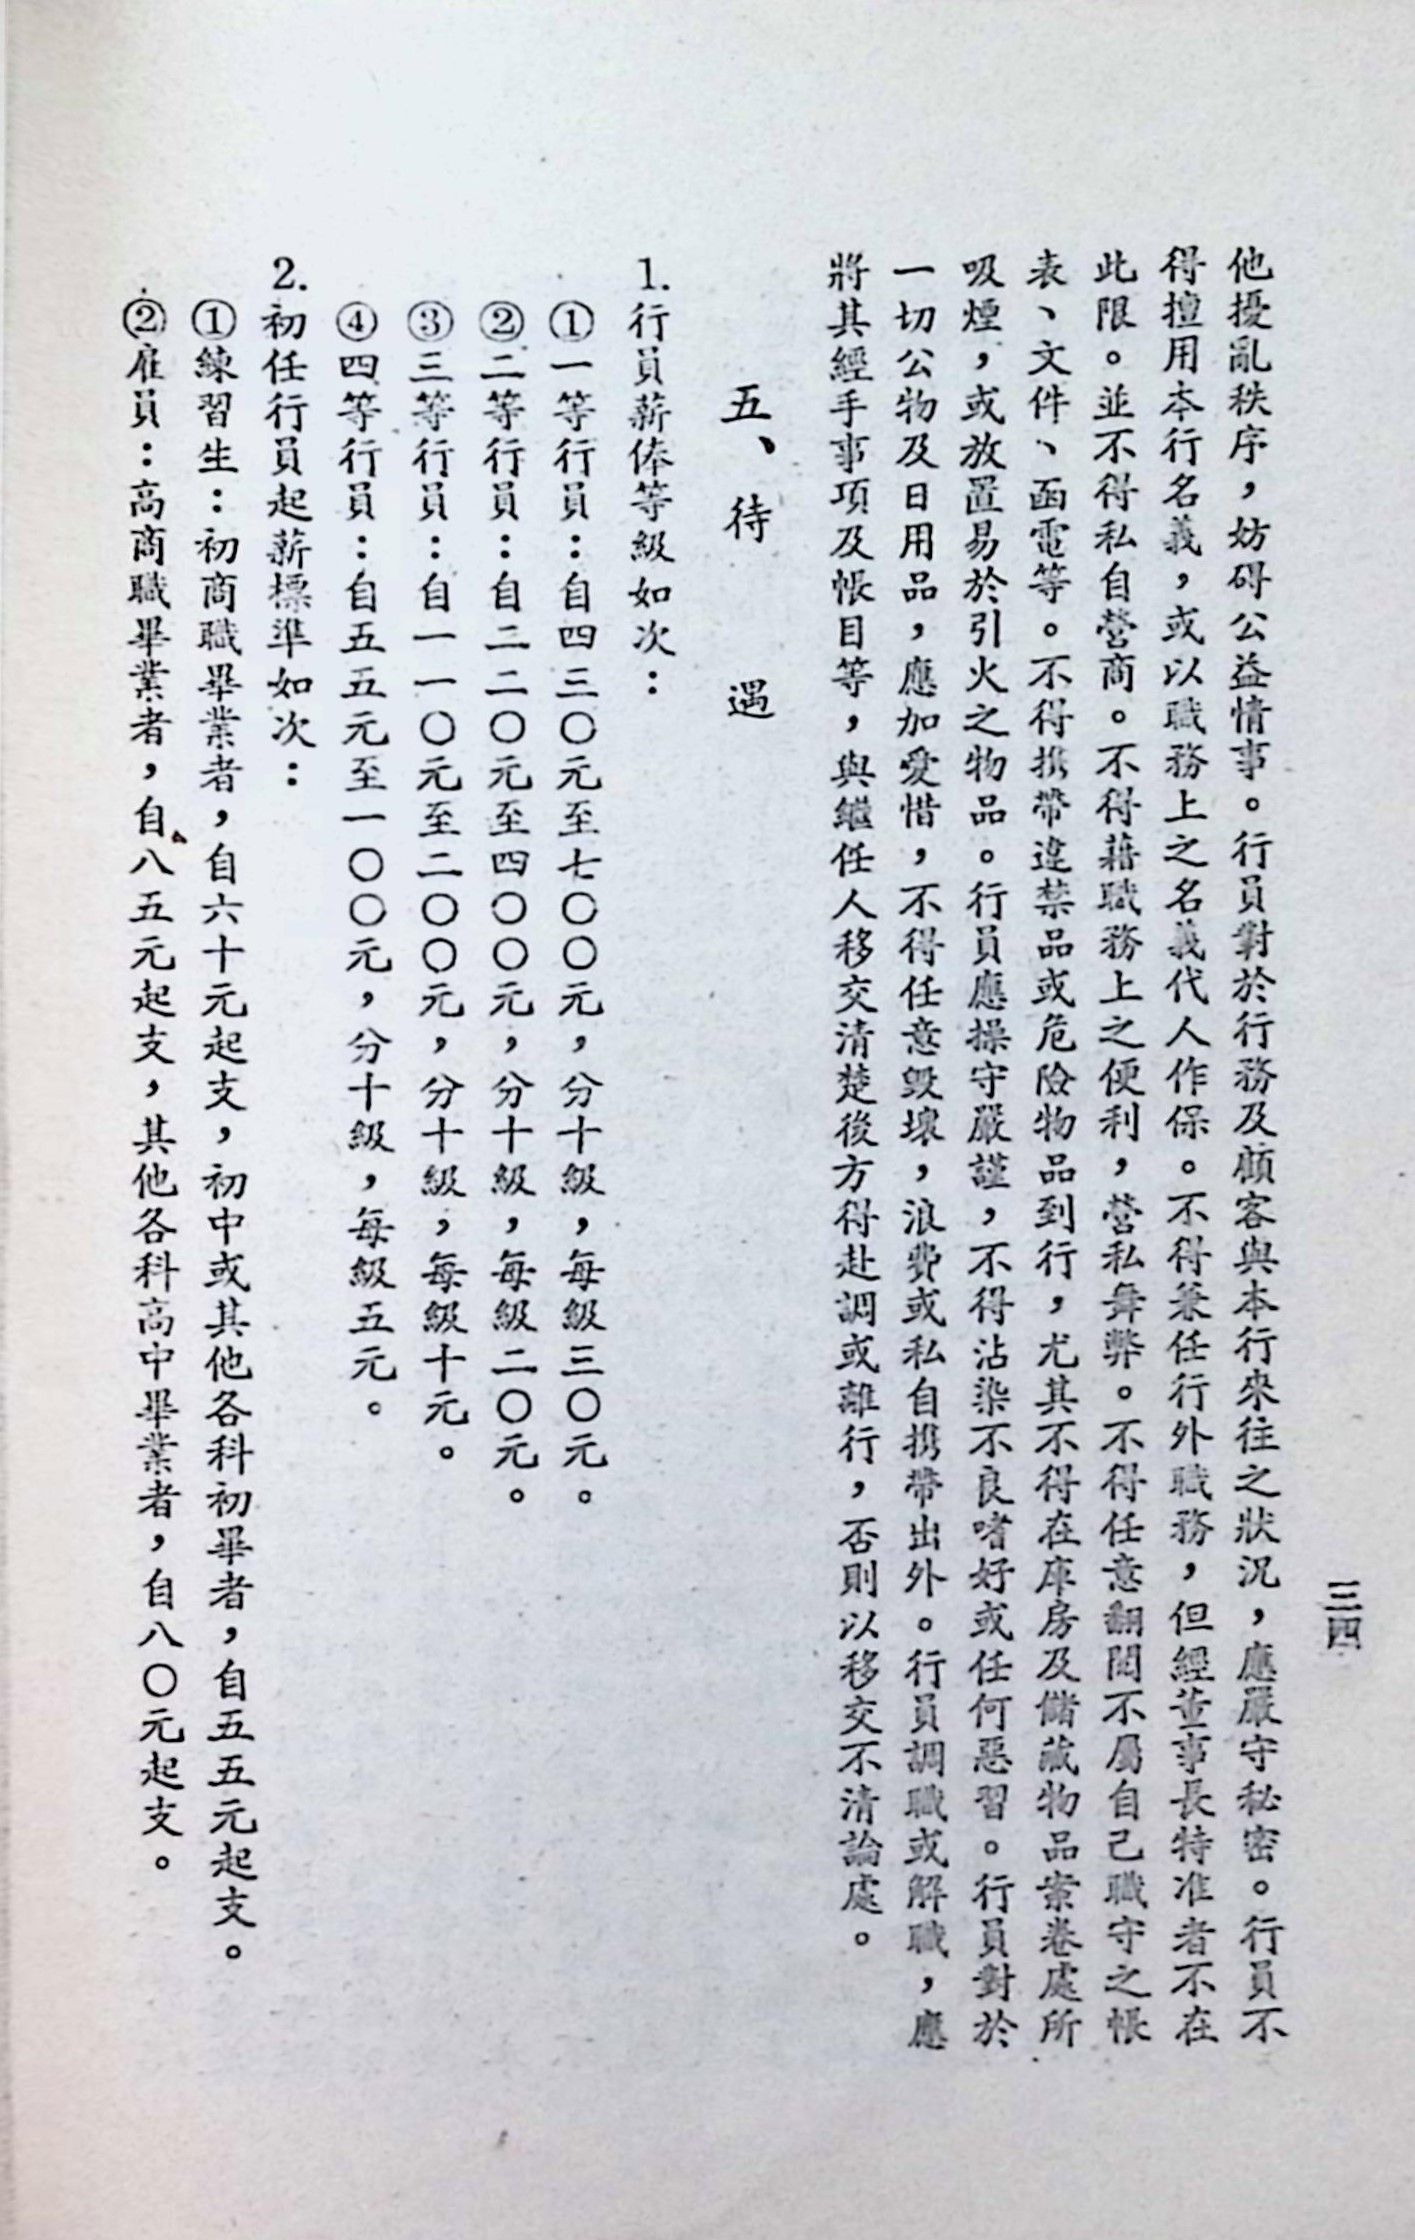 三四
他擾亂秩序，妨碍公益情事。行員對於行務及顧客與本行來往之狀況，應嚴守秘密。行員不
得擅用本行名義，或以職務上之名義代人作保。不得兼任行外職務，但經董事長特准者不在
此限。並不得私自營商。不得藉職務上之便利，營私舞弊。不得任意翻閱不屬自己職守之帳
表、文件、函電等。不得携帶違禁品或危險物品到行，尤其不得在庫房及儲藏物品案卷處所
吸煙，或放置易於引火之物品。行員應操守嚴謹，不得沾染不良嗜好或任何惡習。行員對於
一切公物及日用品，應加愛惜，不得任意毀壞，浪費或私自携帶出外。行員調職或解職，應
將其經手事項及帳目等，與繼任人移交清楚後方得赴調或離行，否則以移交不清論處。
五、待遇
1.行員薪俸等級如次：
①一等行員：自四三〇元至七〇〇元，分十級，每級三〇元。
②二等行員：自二二〇元至四〇〇元，分十級，每級二〇元。
③三等行員：自一一〇元至二〇〇元，分十級，每級十元。
④四等行員：自五五元至一〇〇元，分十級，每級五元。
2.初任行員起薪標準如次：
①練習生：初商職畢業者，自六十元起支，初中或其他各科初畢者，自五五元起支。
②雇員：高商職畢業者，自八五元起支，其他各科高中畢業者，自八〇元起支。